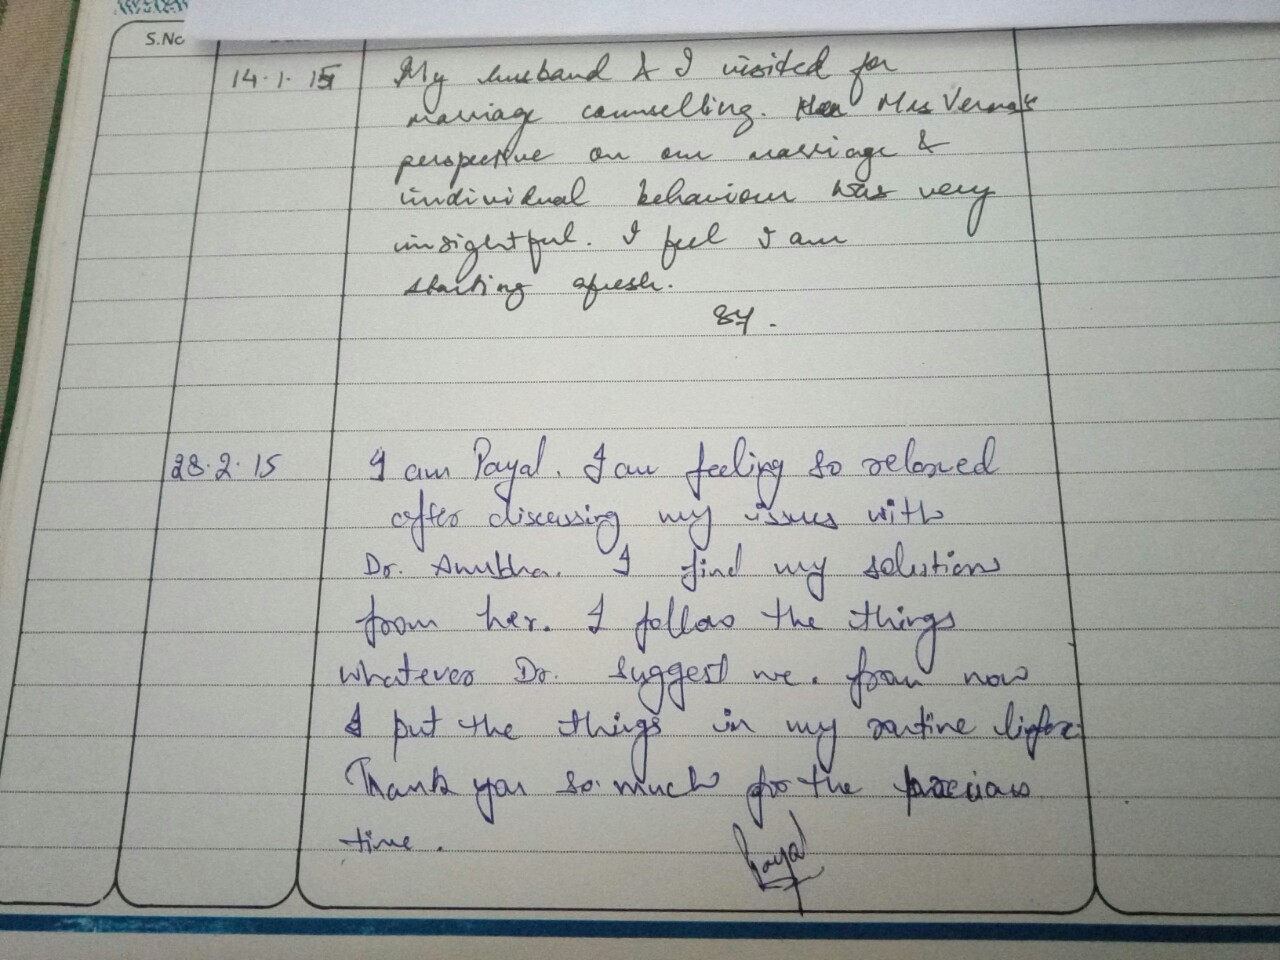 S.No
14.1.15
My husband & I visited for
marriage counselling. Mrs Verma's
perspective on our marriage &
individual behaviour was very
insightful. I feel I am
starting afresh.
28.2.15
I am Payal. I am feeling so relaxed
after discussing my issues with
Dr. Anubha. I find my solutions
from her. I follow the things
whatever Dr. suggest me. from now
I put the things in my routine
Thank you so much for the precious
time.
Payal